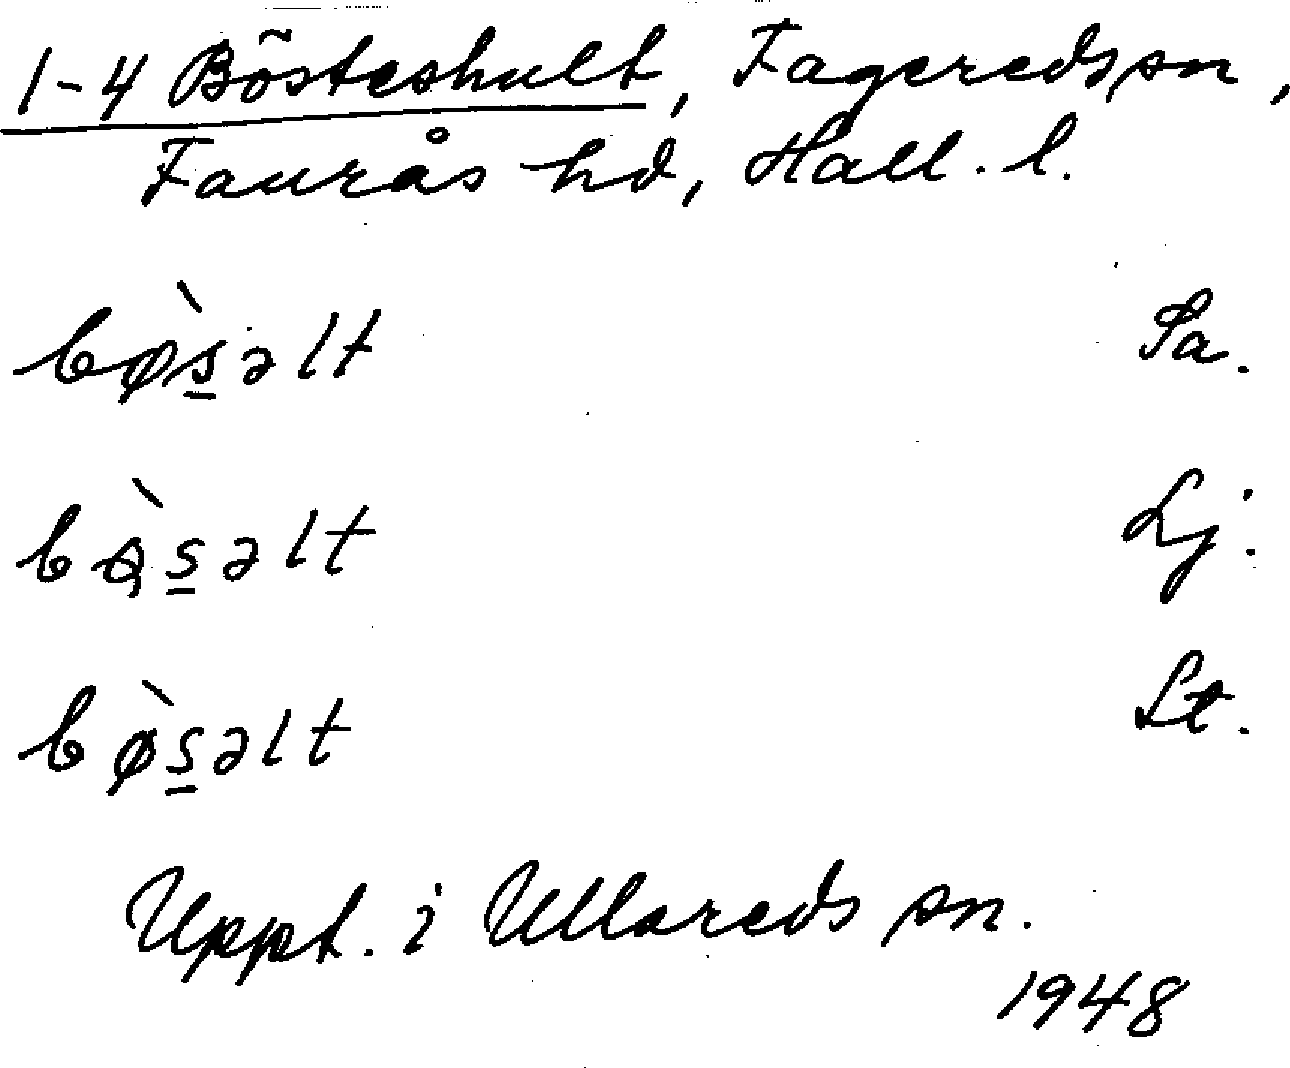 1-4 Bösteshult, Fageredssn,
Faurås hd, Hall. l.
bø̀s̲əlt Sa.
bø̀s̲əlt Lj.
bø̀s̲əlt St.
Uppt. i Ullareds sn.
1948